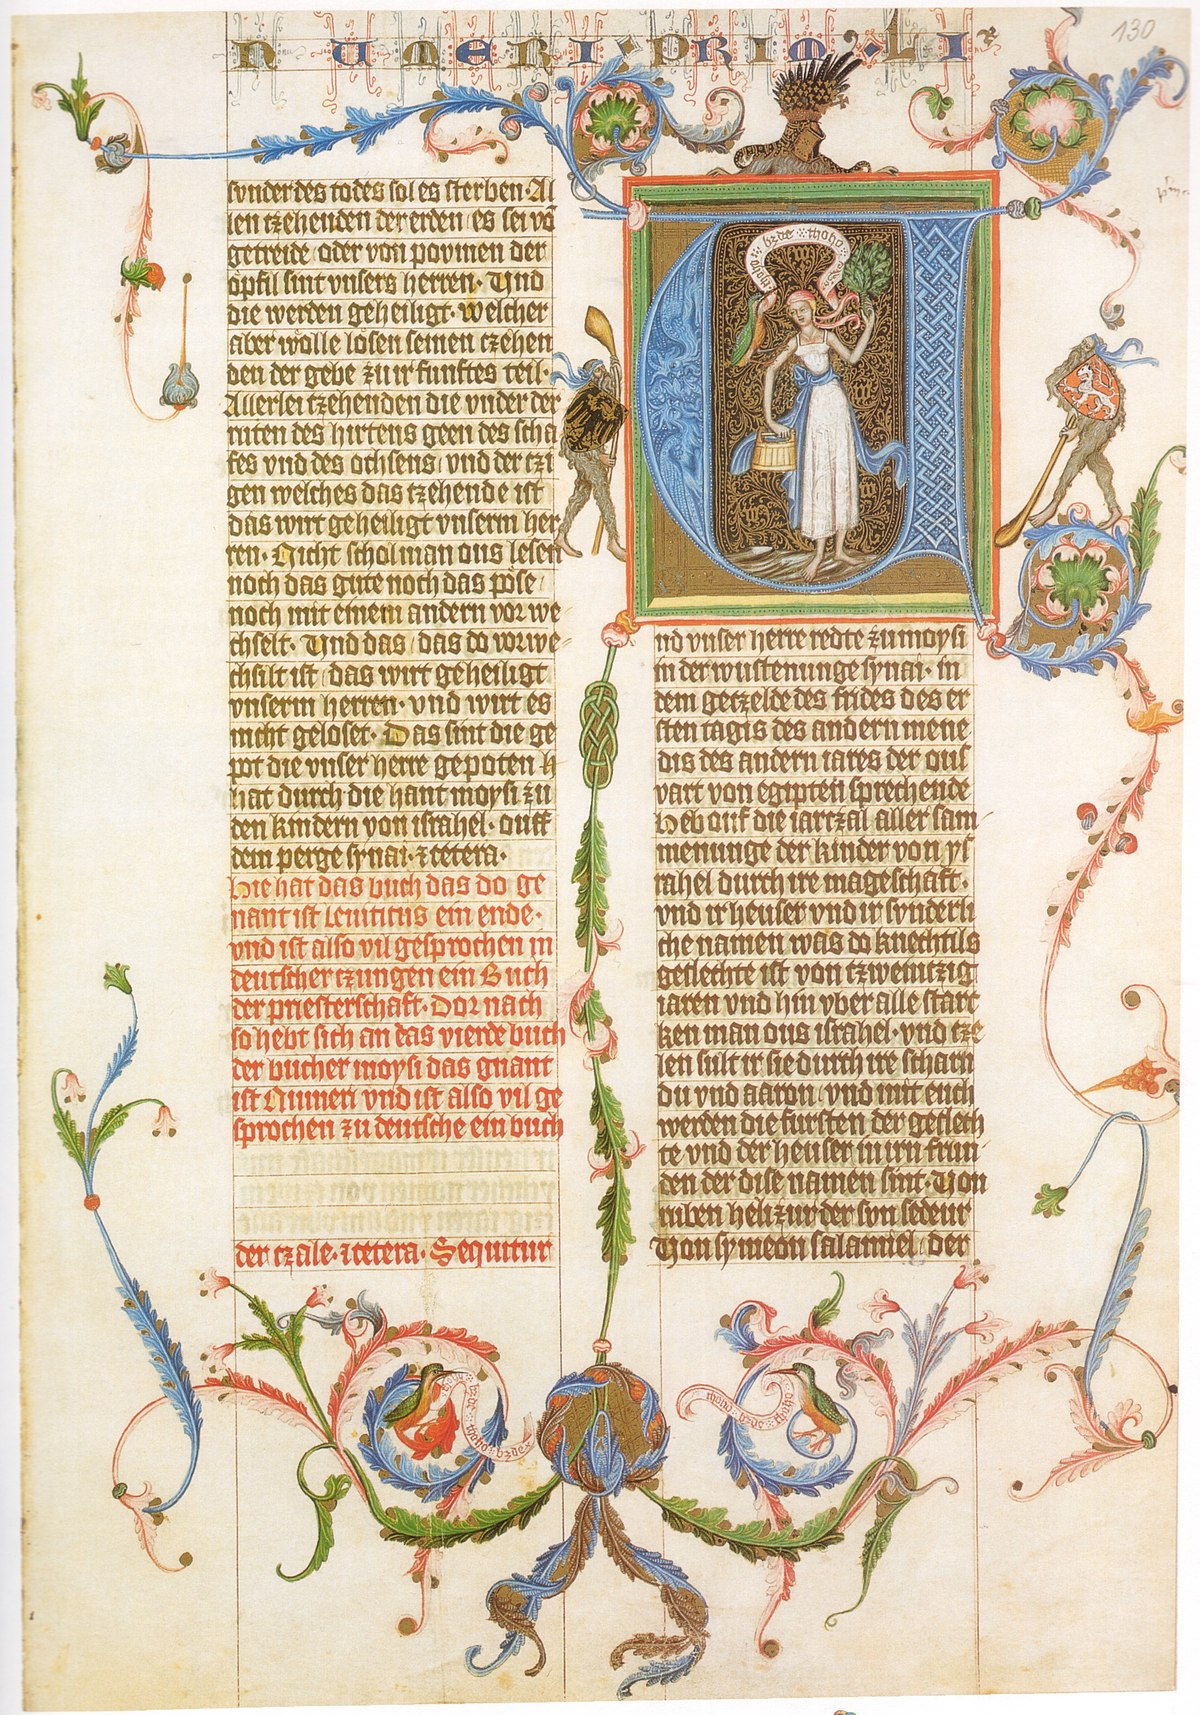 NUMERI PRIM LI
130
sunder des todes sol es sterben. Al
len tzehenden der erden es sei vō
getreide oder von povmen der
opfil sint vnsers herren. Vnd
die werden geheiligt. welcher
aber wolle losen seinen czehen
den der gebe zu ir funftes teil.
Allerlei tzehenden die vnder der
ruten des hirtens geen des scha
fes vnd des ochsens vnd der czi
gen welches das tzehende ist
das wirt geheiligt vnserm her
ren. Nicht schol man ous lesen
noch das gute noch das pose
noch mit einem andern vor we
chselt. Vnd das das do vorwe
chsilt ist das wirt geheiligt
vnserm herren. vnd wirt es
nicht geloset. Das sint die ge
pot die vnser herre gepoten
hat durch die hant moysi zu
den kindern von israhel. ouff
dem perge synai. ⁊cetera.
Hie hat das buch das do ge
nant ist Leuiticus ein ende.
vnd ist also vil gesprochen in
deutscher tzungen ein Buch
der priesterschaft. Dor nach
so hebt sich an das vierde buch
der bucher moysi das gnant
ist Numeri vnd ist also vil ge
sprochen zu deutsche ein buch
der czale. ⁊cetera. Sequitur
toho bzde toho
nd vnser herre redte zu moysi
in der wustenunge synai. in
dem getzelde des frides des er
sten tagis des andern mene
dis des andern iares der ous
vart von egipten sprechende
Heb ouf die iarczal aller sam
menunge der kinder von ys
rahel durch ire mageschaft.
vnd ir heuser vnd ir sunderli
che namen was do knechtils
geslechte ist von czwenczig
iaren vnd hin vber alle starc
ken man ous israhel. vnd tze
len sult ir sie durch ire scharn
du vnd aaron vnd mit euch
werden die fursten der geslech
te vnd der heuser in irn frun
den der dise namen sint. Von
ruben helizur der son sedeur
Von symeon salamiel der
toho bzde toho bzde
toho bzde toho